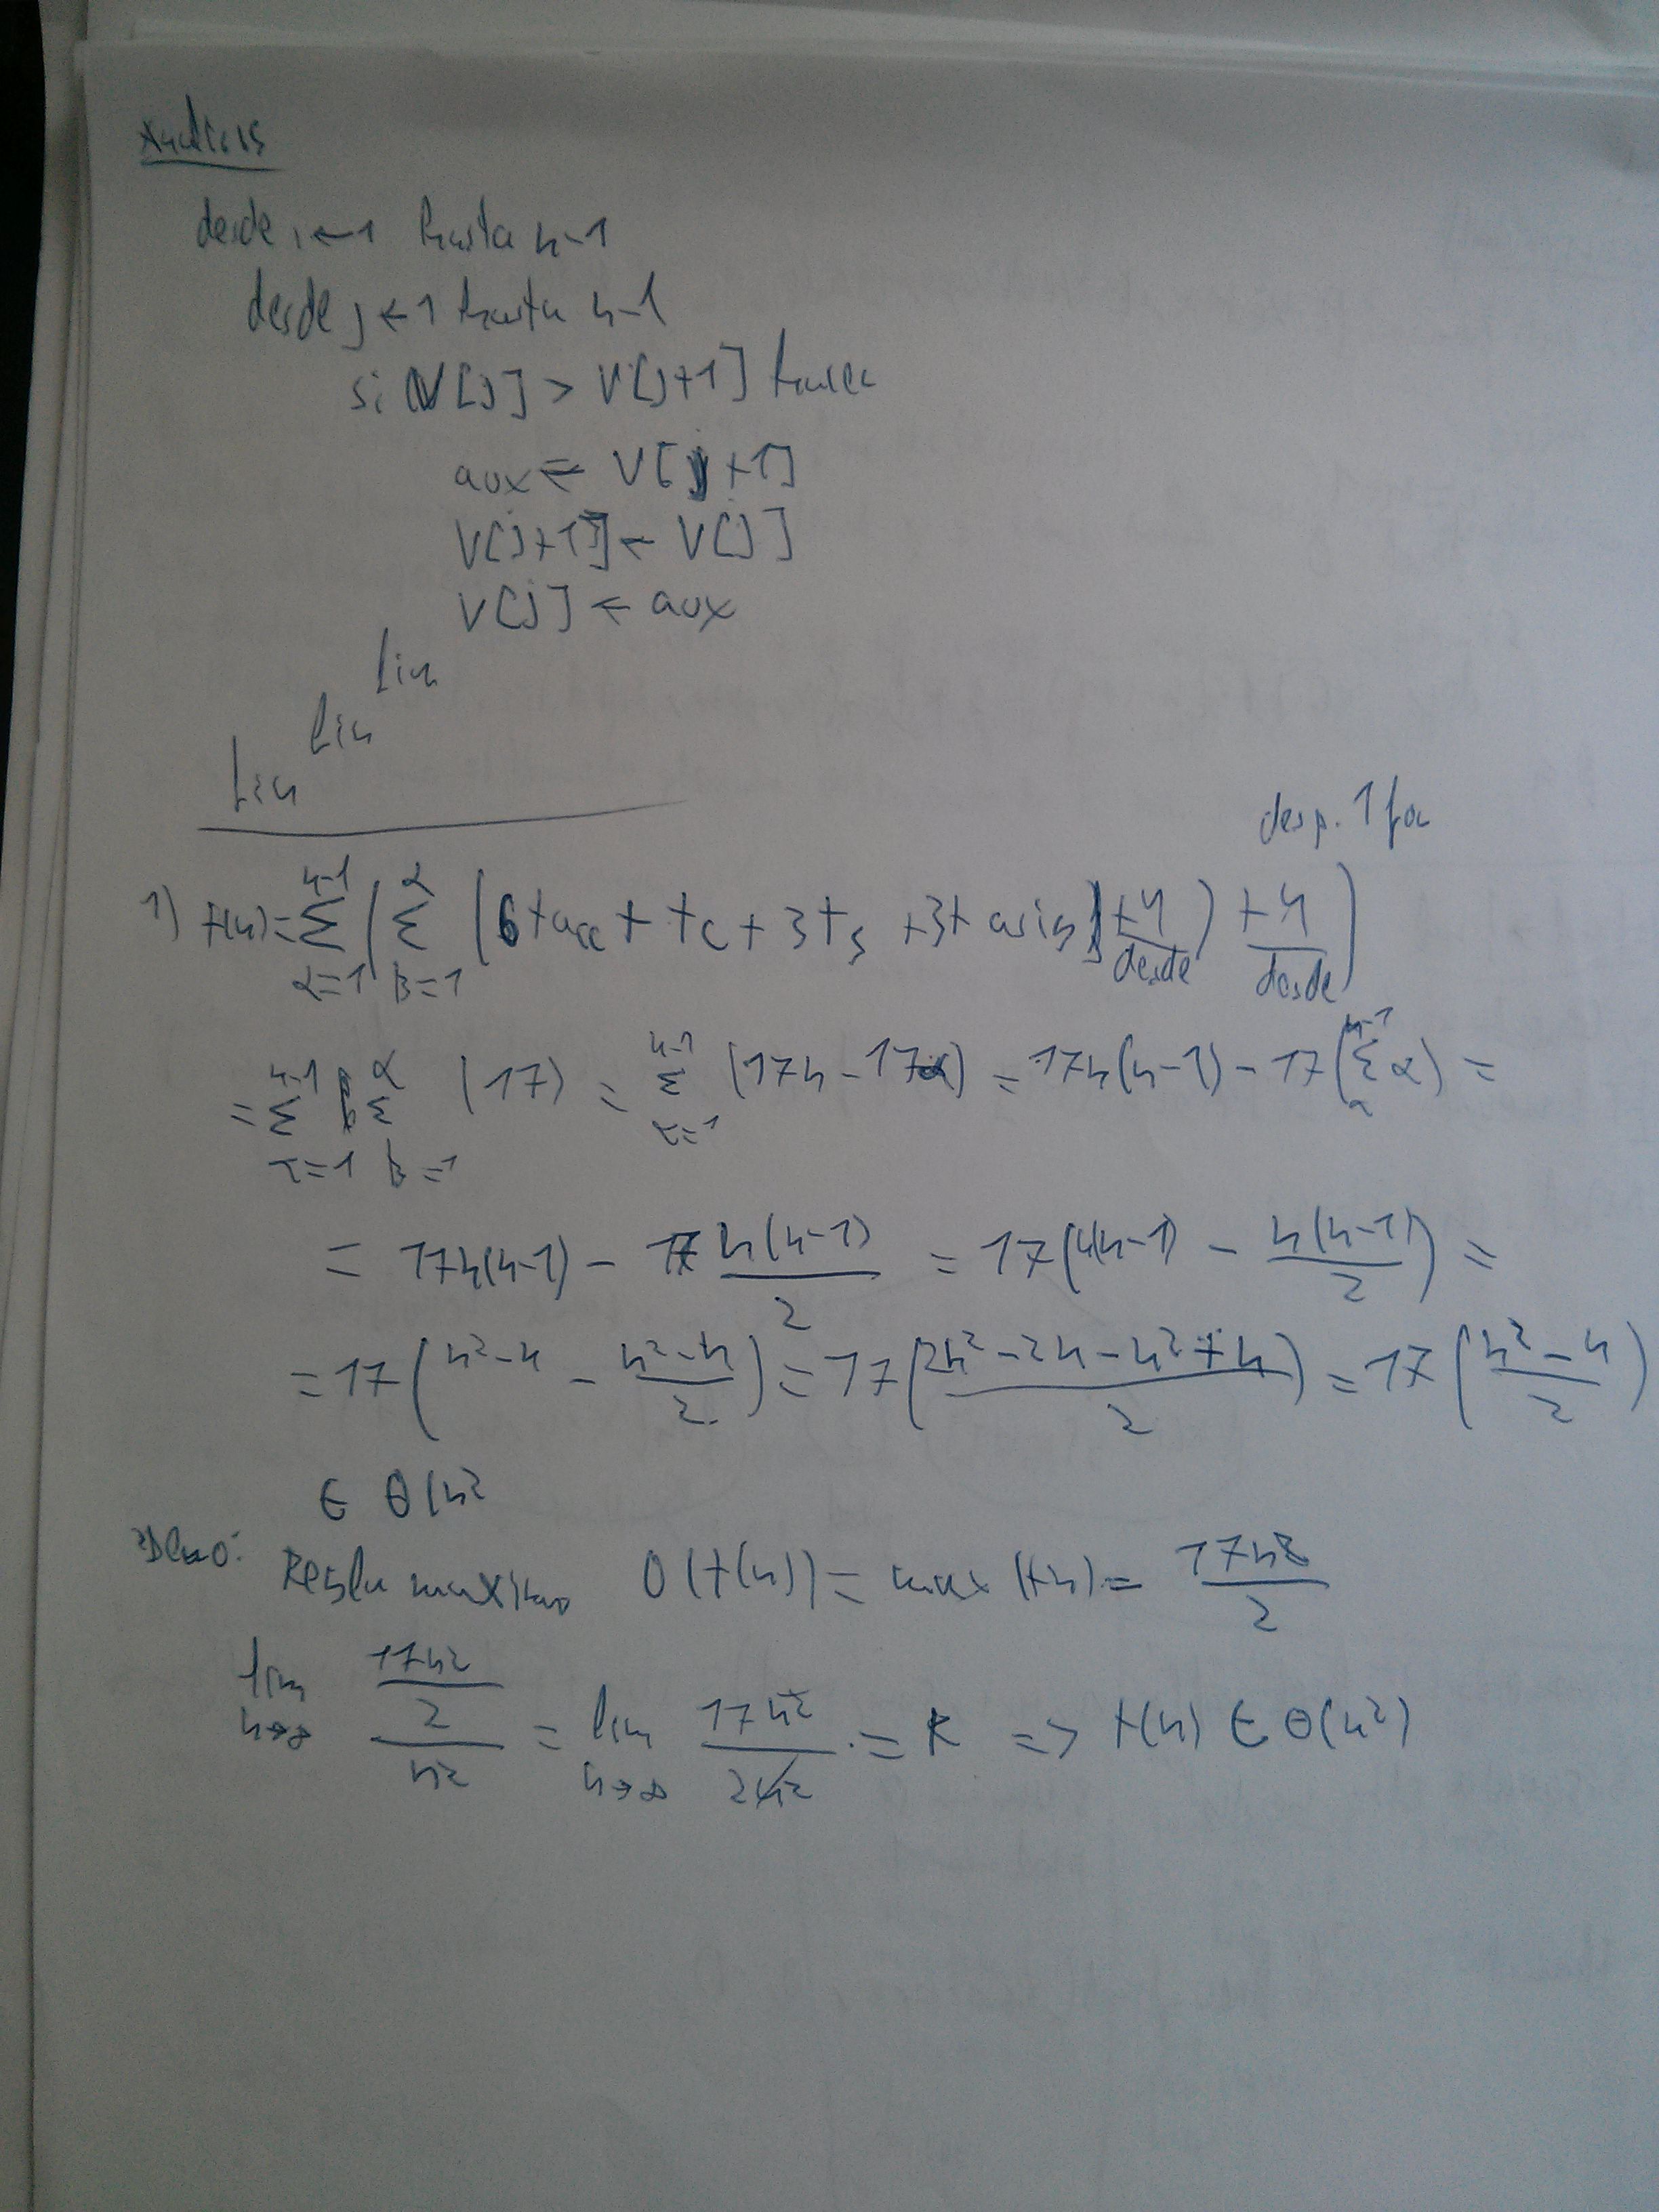 Analisis
desde i ← 1 hasta n-1
desde j ← 1 hasta n-1
si V[j] > V[j+1] hacer
aux ← V[j+1]
V[j+1] ← V[j]
V[j] ← aux
fin
fin
fin
desp. 1 fa
1) t(n) = Σ α=1 n-1 ( Σ B=1 α (6 tacc + tc + 3ts + 3t asig) + 4 desde ) + 4 desde )
= Σ α=1 n-1 Σ B=1 α (17) = Σ α=1 n-1 (17n - 17α) = 17n(n-1) - 17( Σ α n-1 α) =
= 17n(n-1) - 17 n(n-1)/2 = 17(n(n-1) - n(n-1)/2) =
= 17(n²-n - n²-n/2) = 17(2n²-2n-n²+n/2) = 17(n²-n/2)
∈ θ(n²
Demo: Regla maximo O(t(n)) = max (tn) = 17n²/2
lim n→∞ 17n²/2/n² = lim n→∞ 17n²/2n² = K => t(n) ∈ θ(n²)